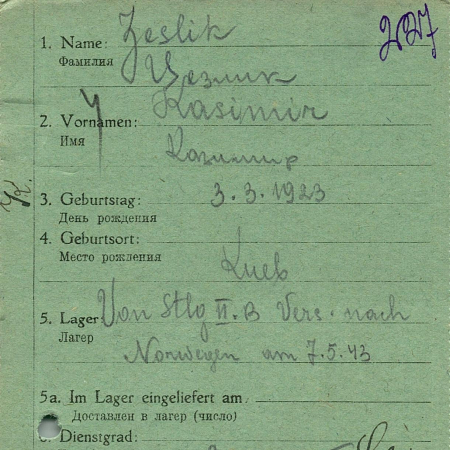 2227
1. Name: Zeslik
Фамилия
Цезлик
Kasimir
2. Vornamen:
Имя
Казимир
3. Geburtstag: 3.3.1923
День рождения
4. Geburtsort:
Место рождения
Киев
5. Lager: Von Stlg II.B Vers. nach
Лагер
Norwegen am 7.5.43
5a. Im Lager eingeliefert am
Доставлен в лагер (число)
6. Dienstgrad: